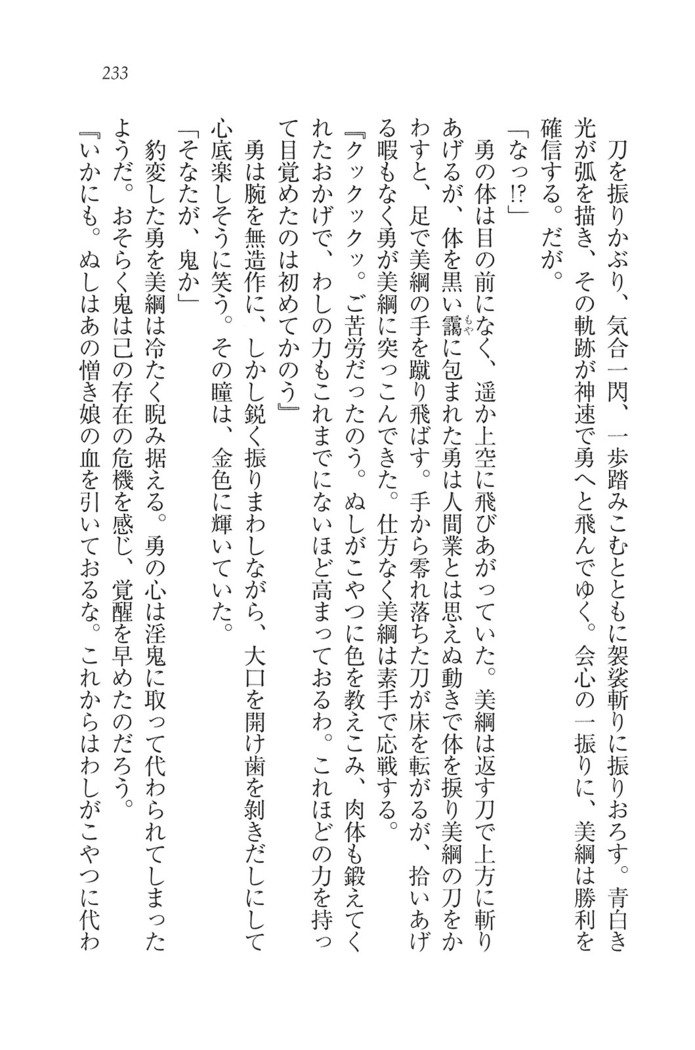 233
刀を振りかぶり、気合一閃、一歩踏みこむとともに袈裟斬りに振りおろす。青白き
光が弧を描き、その軌跡が神速で勇へと飛んでゆく。会心の一振りに、美綱は勝利を
確信する。だが。
「なっ!?」
勇の体は目の前になく、遥か上空に飛びあがっていた。美綱は返す刀で上方に斬り
あげるが、体を黒い靄に包まれた勇は人間業とは思えぬ動きで体を捩り美綱の刀をか
もや
わすと、足で美綱の手を蹴り飛ばす。手から零れ落ちた刀が床を転がるが、拾いあげ
る暇もなく勇が美綱に突っこんできた。仕方なく美綱は素手で応戦する。
『クックックッ。ご苦労だったのう。ぬしがこやつに色を教えこみ、肉体も鍛えてく
れたおかげで、わしの力もこれまでにないほど高まっておるわ。これほどの力を持っ
て目覚めたのは初めてかのう』
勇は腕を無造作に、しかし鋭く振りまわしながら、大口を開け歯を剝きだしにして
心底楽しそうに笑う。その瞳は、金色に輝いていた。
「そなたが、鬼か」
豹変した勇を美綱は冷たく睨み据える。勇の心は淫鬼に取って代わられてしまった
ようだ。おそらく鬼は己の存在の危機を感じ、覚醒を早めたのだろう。
『いかにも。ぬしはあの憎き娘の血を引いておるな。これからはわしがこやつに代わ